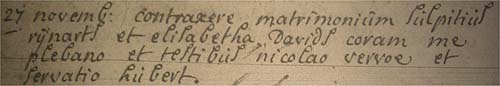 27 novemb: contraxere matrimonium sulpitius
rijnarts et elisabetha Davids coram me
plebano et testibus nicolao vervoe et
servatio hubert.